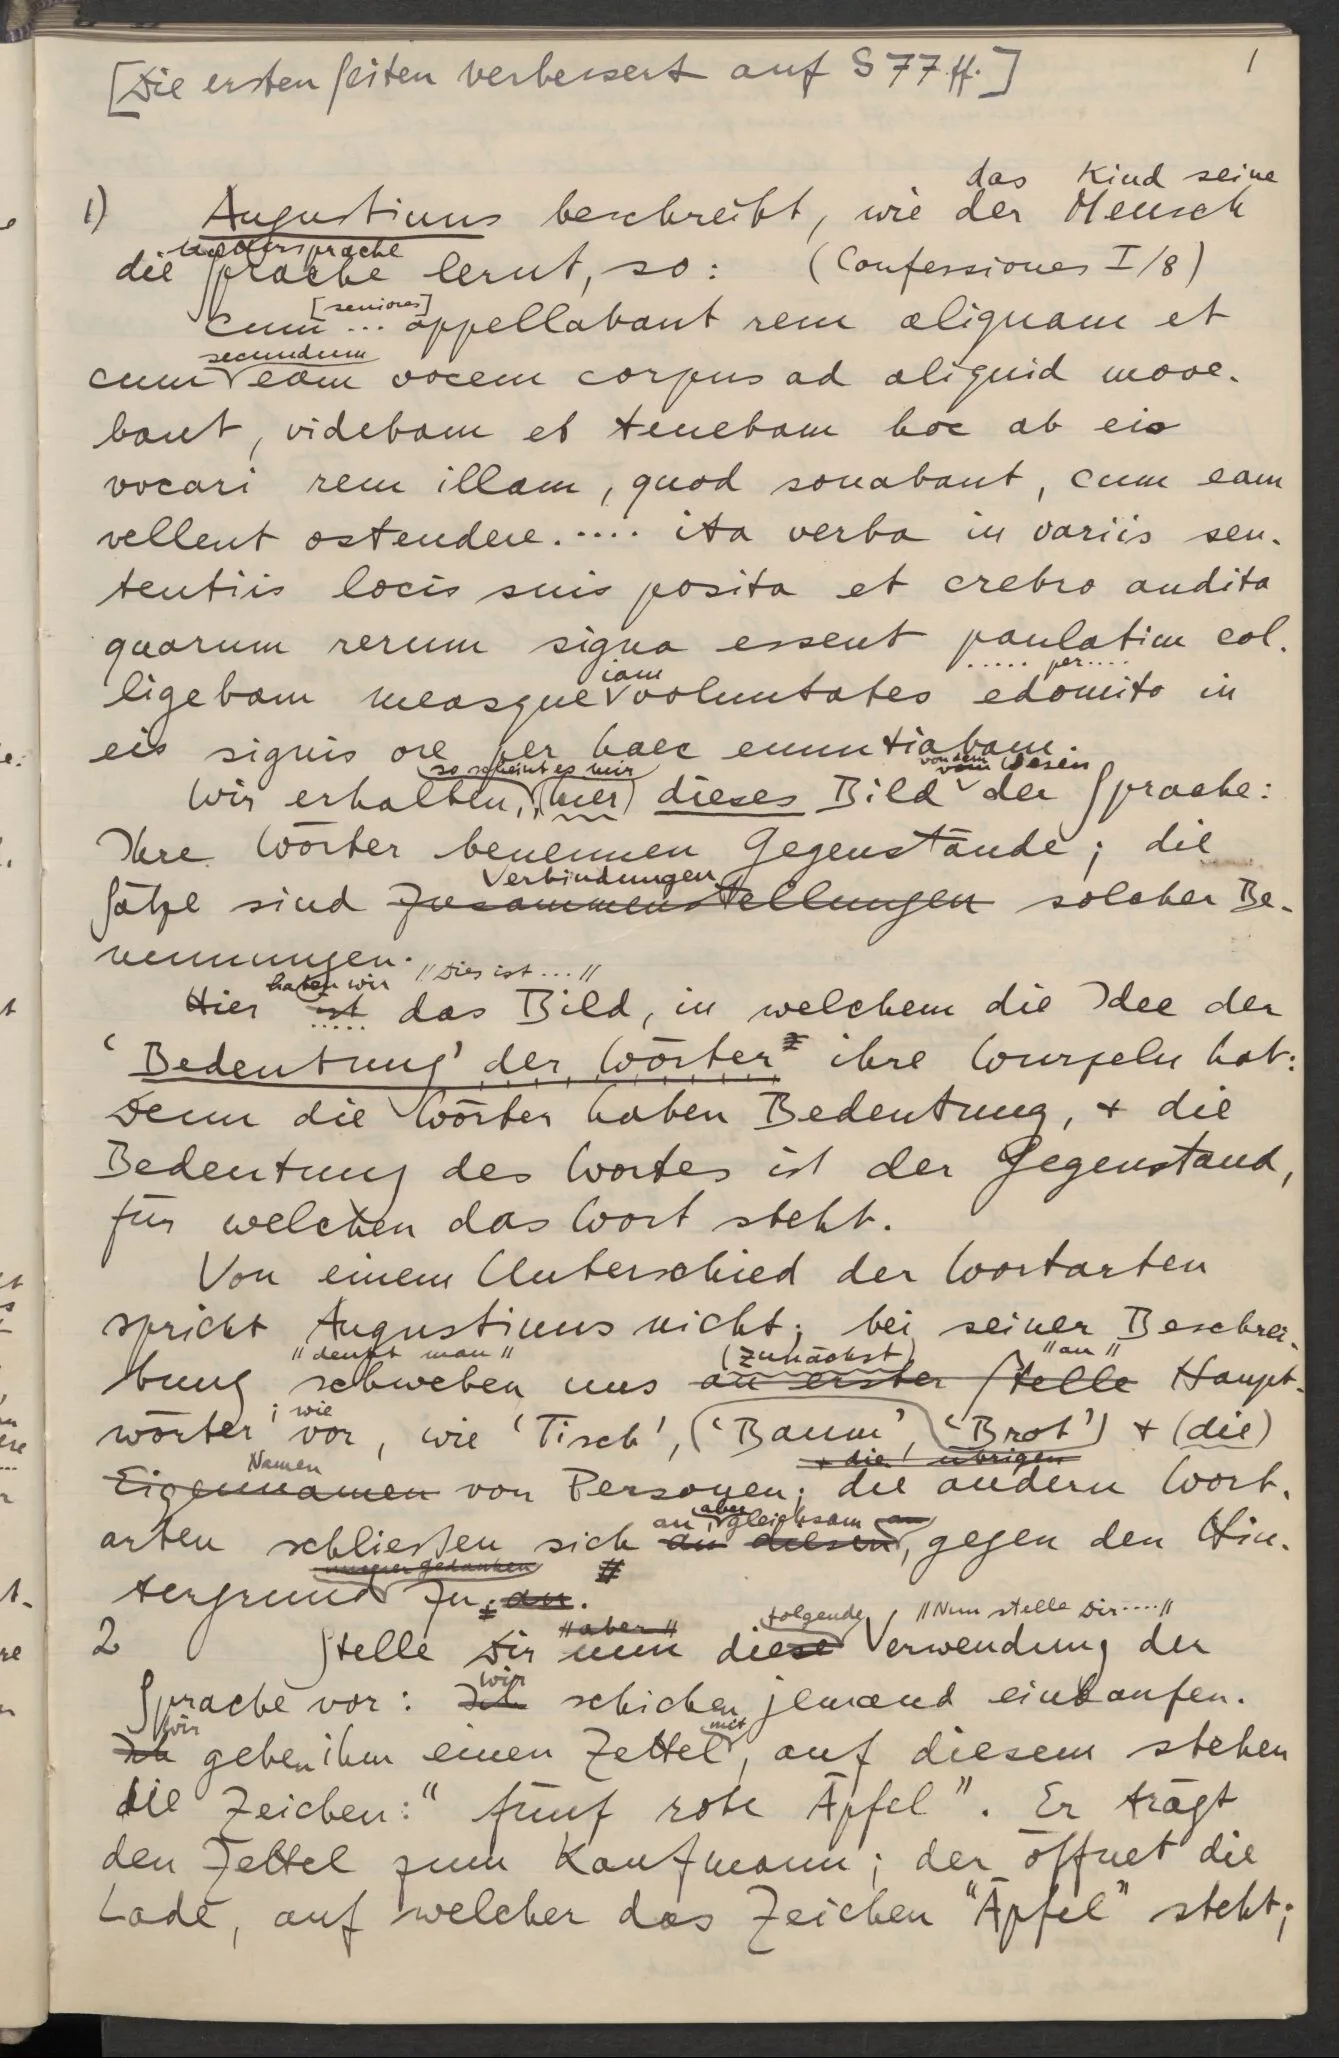 [Die ersten Seiten verbessert auf S 77 ff.]
1
das Kind seine
1) Augustinus beschreibt, wie der Mensch
Muttersprache
die Sprache lernt, so: (Confessiones I/8)
[seniores]
cum ... appellabant rem aliquam et
secundum
cum eam vocem corpus ad aliquid move-
bant, videbam et tenebam hoc ab eis
vocari rem illam, quod sonabant, cum eam
vellent ostendere. .... ita verba in variis sen-
tentiis locis suis posita et crebro audita
quarum rerum signa essent paulatim col-
iam ..... per....
ligebam measque voluntates edomito in
eis signis ore per haec enuntiabam.
so scheint es mir von dem vom Wesen
Wir erhalten, (hier) dieses Bild der Sprache:
Ihre Wörter benennen Gegenstände; die
Verbindungen
Sätze sind Zusammenstellungen solcher Be-
nennungen.
haben wir //Dies ist ...//
Hier ist das Bild, in welchem die Idee der
'Bedeutung' der Wörter ihre Wurzeln hat:
Denn die Wörter haben Bedeutung, + die
Bedeutung des Wortes ist der Gegenstand,
für welchen das Wort steht.
Von einem Unterschied der Wortarten
spricht Augustinus nicht; bei seiner Beschrei-
//denkt man// (zunächst) //an//
bung schweben uns an erster Stelle Haupt-
; wie
wörter vor, wie 'Tisch', ('Baum', 'Brot') + (die)
Namen + die übrigen
Eigennamen von Personen; die andern Wort-
an, aber gleichsam an
arten schließen sich an diesen, gegen den Hin-
unserer Gedanken
tergrund zu, an.
//aber// folgende //Nun stelle Dir ....//
2 Stelle Dir nun diese Verwendung der
wir
Sprache vor: Ich schicken jemand einkaufen.
Wir mit
Ich geben ihm einen Zettel, auf diesem stehen
die Zeichen: "fünf rote Äpfel". Er trägt
den Zettel zum Kaufmann; der öffnet die
Lade, auf welcher das Zeichen "Äpfel" steht;